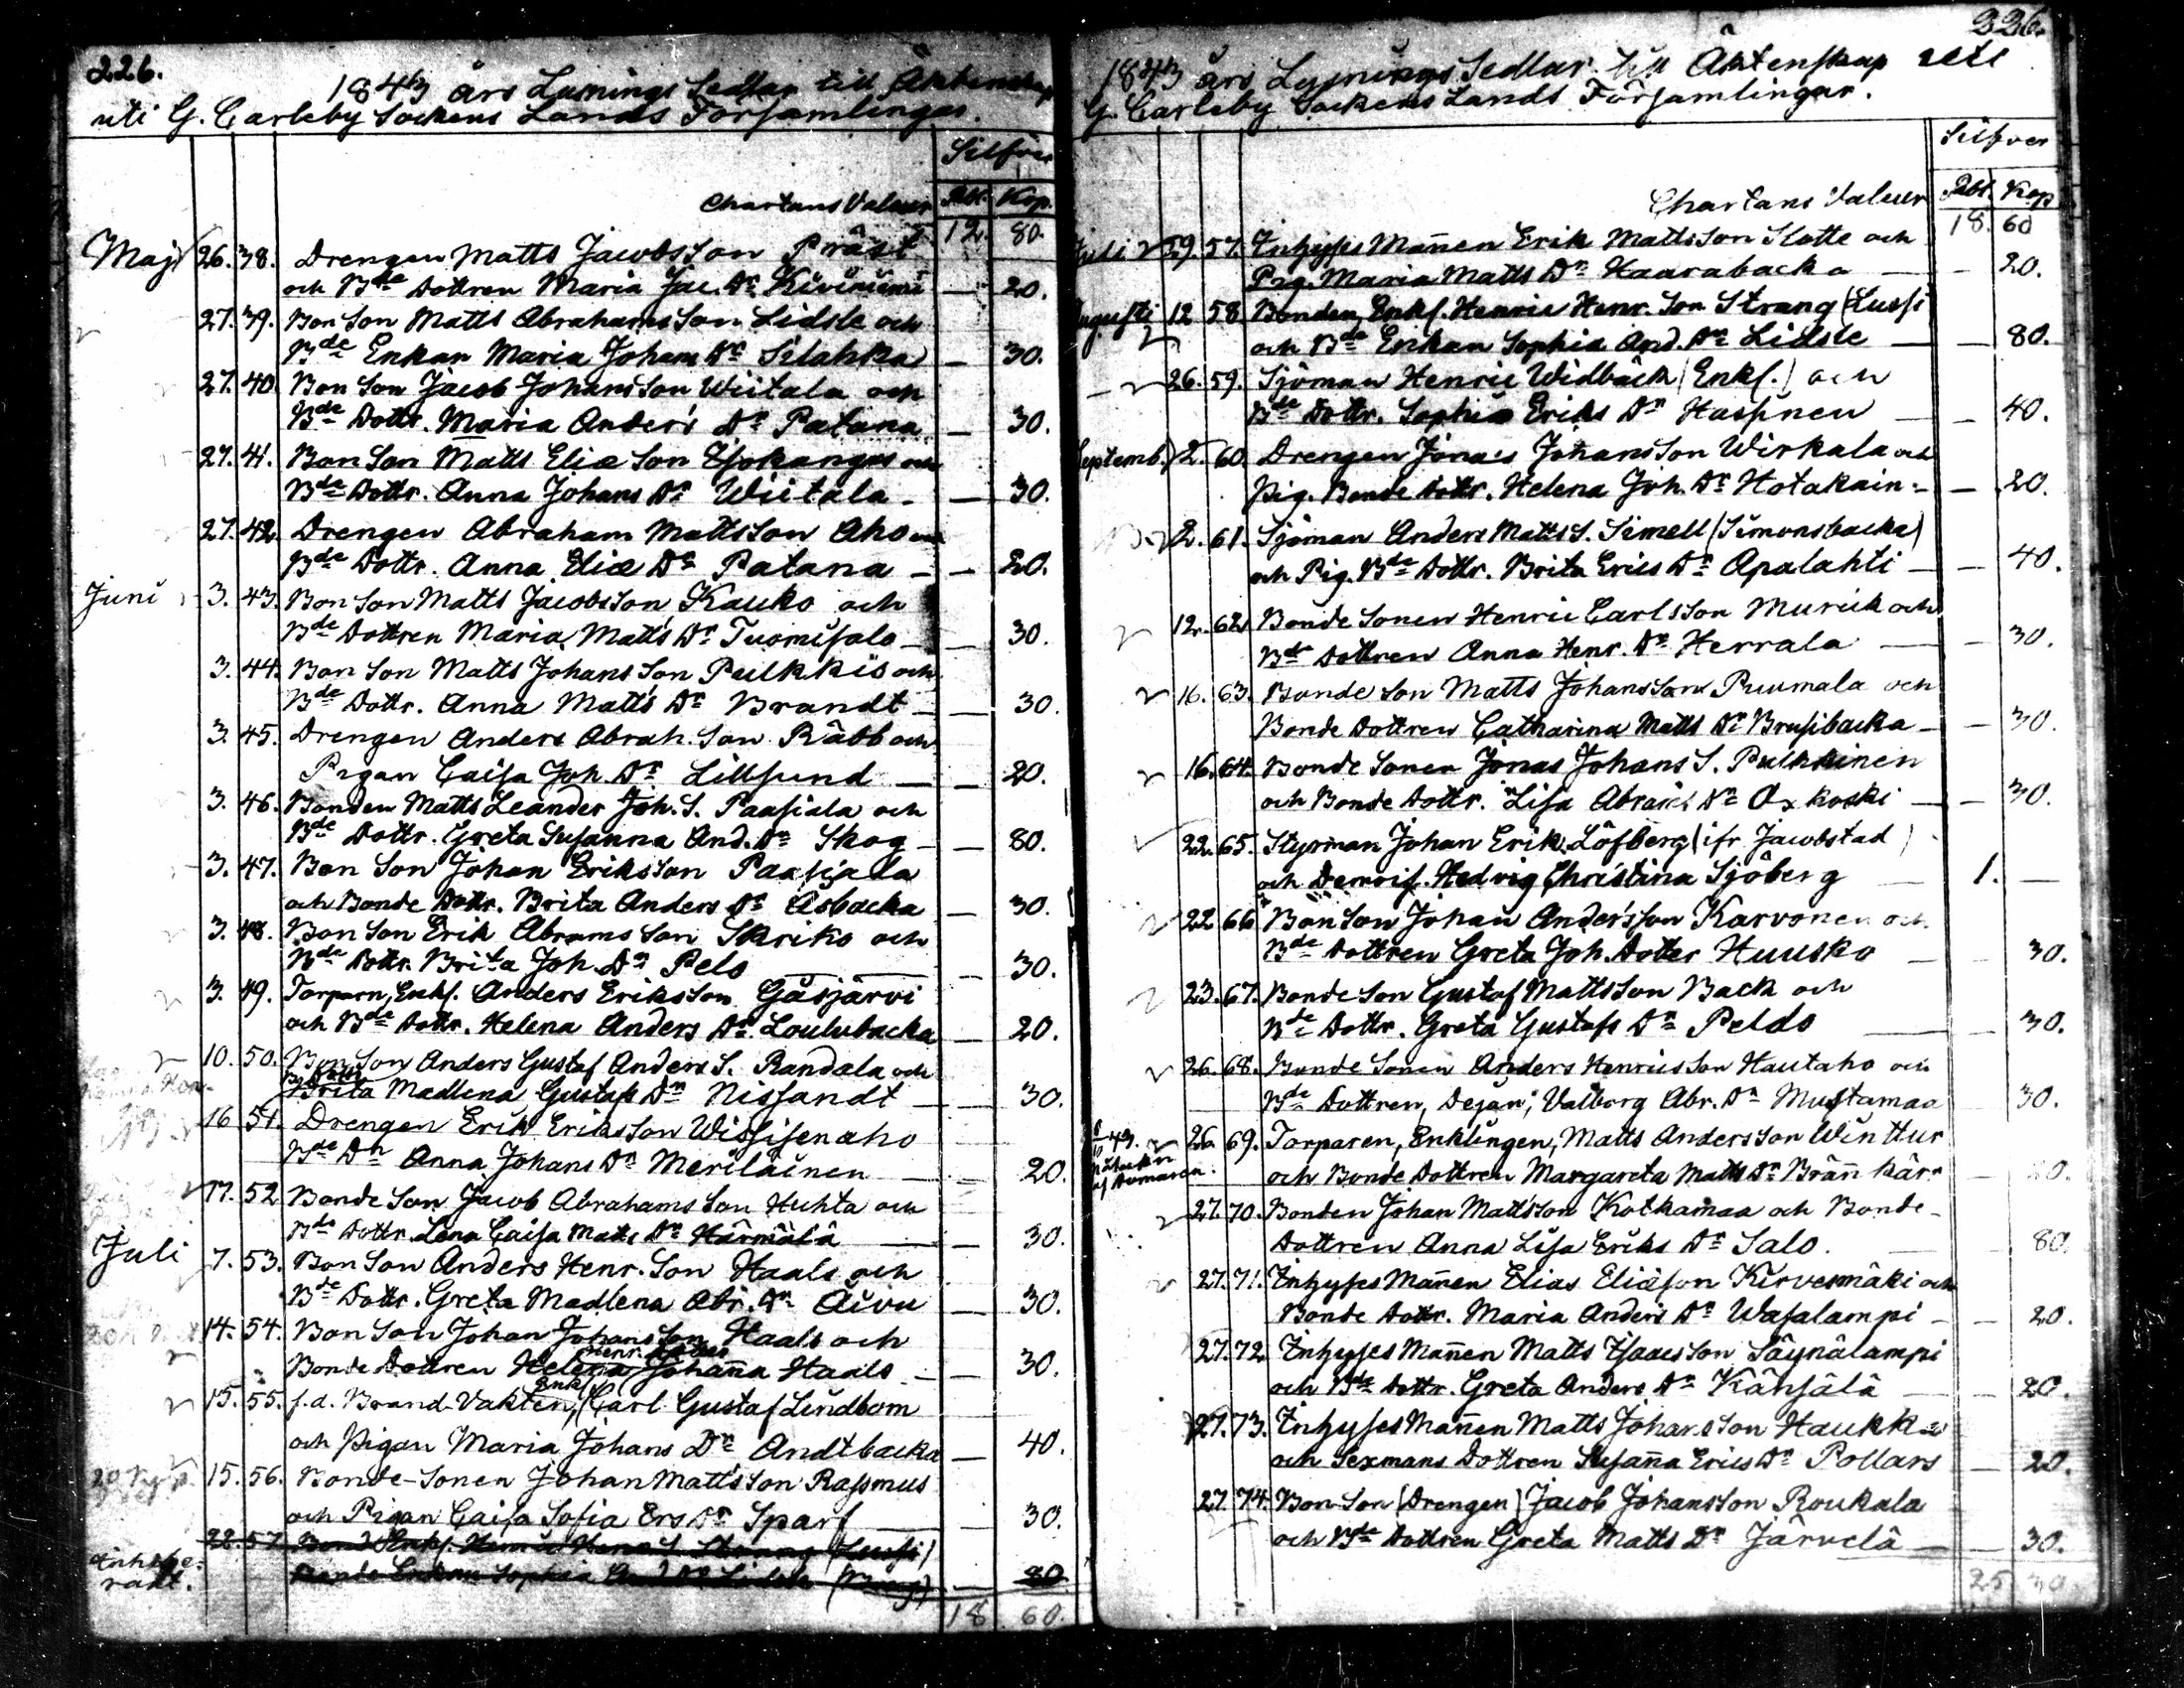 226.
1843 års Lysnings Sedlar till Äktenskap
uti G. Carleby Sockens Lands Församlingar.
Silfver
Chartans Valeur Rbl. Kop.
12. 80.
Maj 26. 38. Drengen Matts Jacobsson Präst
och Bde Dottren Maria Jac. Dr Kiviniemi — 20.
27. 39. Bon Son Matts Abrahamsson Lidsle och
Bde Enkan Maria Johans Dr Silahka — 30.
27. 40. Bon Son Jacob Johansson Wiitala och
Bde Dottr. Maria Anders Dr Patana — 30.
27. 41. Bon Son Matts Eliæ Son Isokangas och
Bde Dottr. Anna Johans Dr Wiitala — 30.
27. 42. Drengen Abraham Mattsson Aho och
Bde Dottr. Anna Eliæ Dr Patana — 20.
Juni 3. 43. Bon Son Matts Jacobsson Kauko och
Bde Dottren Maria Matts Dr Tuomisalo — 30.
3. 44. Bon Son Matts Johansson Pulkkis och
Bde Dottr. Anna Matts Dr Brandt — 30.
3. 45. Drengen Anders Abrah. Son Räbb och
Pigan Caisa Joh. Dr Lillsund — 20.
3. 46. Bonden Matts Leander Joh. S. Paasiala och
Bde Dottr. Greta Susanna And. Dr Skog — 80.
3. 47. Bon Son Johan Eriksson Paasiala
och Bonde Dottr. Brita Anders Dr Åsbacka — 30.
3. 48. Bon Son Erik Abramsson Skriko och
Bde Dottr. Brita Joh. Dr Pelo — 30.
3. 49. Torparn, Enkl. Anders Eriksson Gåsjärvi
och Bde Dottr. Helena Anders Dr Loulubacka — 20.
10. 50. Bon Son Anders Gustaf Anders S. Randala och
Brita Madlena Gustafs Dr Nissandt — 30.
16. 51. Drengen Erik Eriksson Wissisenaho
Bde Dr Anna Johans Dr Meriläinen — 20.
17. 52. Bonde Son Jacob Abrahamsson Huhta och
Bde Dottr. Lena Caisa Matts Dr Härmälä — 30.
Juli 7. 53. Bon Son Anders Henr. Son Haals och
Bde Dottr. Greta Madlena Abr. Dr Aivu — 30.
14. 54. Bon Son Johan Johansson Haals och
Henr. Dotter
Bonde Dottren Helena Johan̄a Haals — 30.
Enkl.
15. 55. f.d. Brand-Vakten, Carl Gustaf Lindbom
och Pigan Maria Johans Dr Andtbacka — 40.
15. 56. Bonde-Sonen Johan Mattsson Rassmus
och Pigan Caisa Sofia Ers Dr Sparf — 30.
22. 57. Bond. Enkl. Henric Henr. S. Strang (Lussi)
Bonde Enkan Sophia And. Dr Lidsle — 80
18 60.
226.
1843 års Lysnings Sedlar till Äktenskap uti
G. Carleby Sockens Lands Församlingar.
Silfver
Chartans Valeur Rbl. Kop.
18. 60
Juli 29. 57. Inhyses Man̄en Erik Mattsson Slotte och
Pig. Maria Matts Dr Haarabacka — 20.
Augusti 12 58. Bonden, Enkl. Henric Henr. Son Strang (Lussi
och Bde Enkan Sophia And. Dr Lidsle — 80.
26. 59. Sjöman Henric Widbäck (Enkl.) och
Bde Dottr. Sophia Eriks Dr Hassinen — 40.
Septemb. 2. 60. Drengen Jonas Johansson Wirkala och
Pig. Bonde Dottr. Helena Joh. Dr Hotakain — 20.
2. 61. Sjöman Anders Matts S. Simell (Simonsbacka)
och Pig. Bde Dottr. Brita Erics Dr Apalahti — 40.
12. 62. Bonde Sonen Henric Carlsson Murick och
Bde Dottren Anna Henr. Dr Herrala — 30.
16. 63. Bonde Son Matts Johansson Puumala och
Bonde Dottren Catharina Matts Dr Brusibacka — 30.
16. 64. Bonde Sonen Jonas Johans S. Pulkkinen
och Bonde Dottr. Lisa Abrams Dr Oxkoski — 30.
22. 65. Styrman Johan Erik Löfberg (ifr Jacobstad)
och Demois. Hedvig Christina Sjöberg 1. —
22 66 Bon Son Johan Andersson Karvonen och
Bde Dottren Greta Joh. Dotter Huusko — 30.
23. 67. Bonde Son Gustaf Mattsson Back och
Bde Dottr. Greta Gustafs Dr Pelds — 30.
26. 68. Bonde Sonen Anders Henricsson Hautaho och
Bde Dottren, Dejan, Valborg Abr. Dr Mustamaa — 30.
26. 69. Torparen, Enklingen, Matts Andersson Winttur
och Bonde Dottren Margareta Matts Dr Brän̄kärr — 20.
27. 70. Bonden Johan Mattsson Kotkamaa och Bonde-
Dottren Anna Lisa Eriks Dr Salo. 80.
27. 71. Inhyses Man̄en Elias Eliæson Kirvesmäki och
Bonde Dottr. Maria Anders Dr Wasalampi — 20.
27. 72. Inhyses Man̄en Matts Isacsson Säynälampi
och Bde Dottr. Greta Anders Dr Känsälä — 20.
27. 73. Inhyses Man̄en Matts Johansson Haukka
och Sexmans Dottren Susan̄a Erics Dr Pollars — 20.
27. 74. Bon Son (Drengen) Jacob Johansson Roukala
och Bde Dottren Greta Matts Dr Järvelä — 30.
25 30